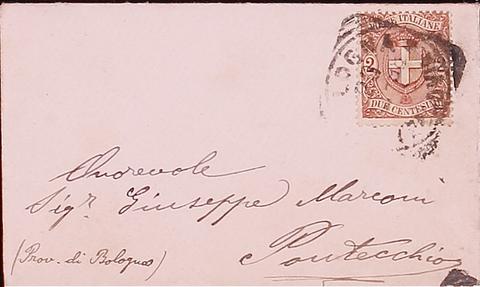 E ITALIANE
2
DUE CENTESIMI
Onorevole
Sigr. Giuseppe Marconi
Pontecchio
(Prov. di Bologna)